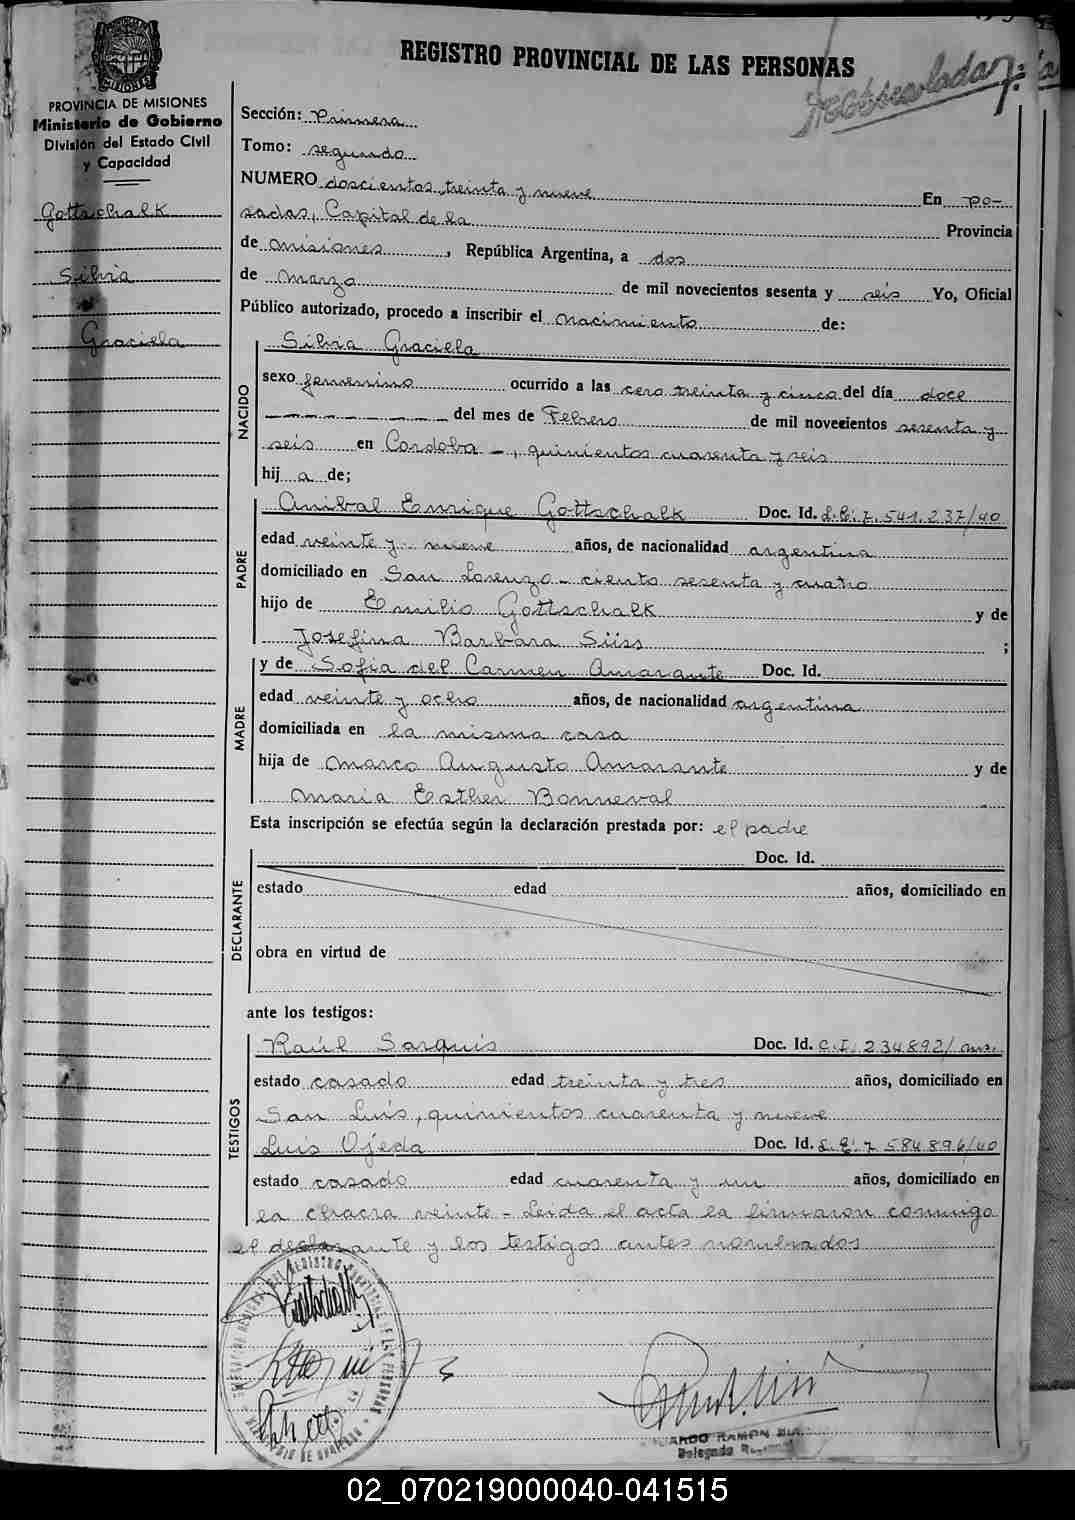 REGISTRO PROVINCIAL DE LAS PERSONAS
PROVINCIA DE MISIONES
Ministerio de Gobierno
División del Estado Civil
y Capacidad
Gottschalk
Silvia
Graciela
Sección: Primera
Tomo: segundo
NUMERO doscientos treinta y nueve En Po-
sadas, Capital de la Provincia
de misiones, República Argentina, a dos
de marzo de mil novecientos sesenta y seis Yo, Oficial
Público autorizado, procedo a inscribir el nacimiento de:
NACIDO
Silvia Graciela
sexo femenino ocurrido a las cero treinta y cinco del día doce
del mes de Febrero de mil novecientos sesenta y
seis en Cordoba -, quinientos cuarenta y seis
hij a de;
PADRE
Anibal Enrique Gottschalk Doc. Id. L.E. 7.541.237/40
edad veinte y nueve años, de nacionalidad argentina
domiciliado en San Lorenzo - ciento sesenta y cuatro
hijo de Emilio Gottschalk y de
Josefina Barbara Süss ;
MADRE
y de Sofia del Carmen Amarante Doc. Id.
edad veinte y ocho años, de nacionalidad argentina
domiciliada en la misma casa
hija de Marco Augusto Amarante y de
Maria Esther Bonneval
Esta inscripción se efectúa según la declaración prestada por: el padre
DECLARANTE
Doc. Id.
estado edad años, domiciliado en
obra en virtud de
ante los testigos:
TESTIGOS
Raúl Sarquis Doc. Id. C.I. 234892/ ms.
estado casado edad treinta y tres años, domiciliado en
San Luis, quinientos cuarenta y nueve
Luis Ojeda Doc. Id. L.E. 7 584896/40
estado casado edad cuarenta y un años, domiciliado en
la chacra veinte - Leida el acta la firmaron conmigo
el declarante y los testigos antes nombrados
02_070219000040-041515